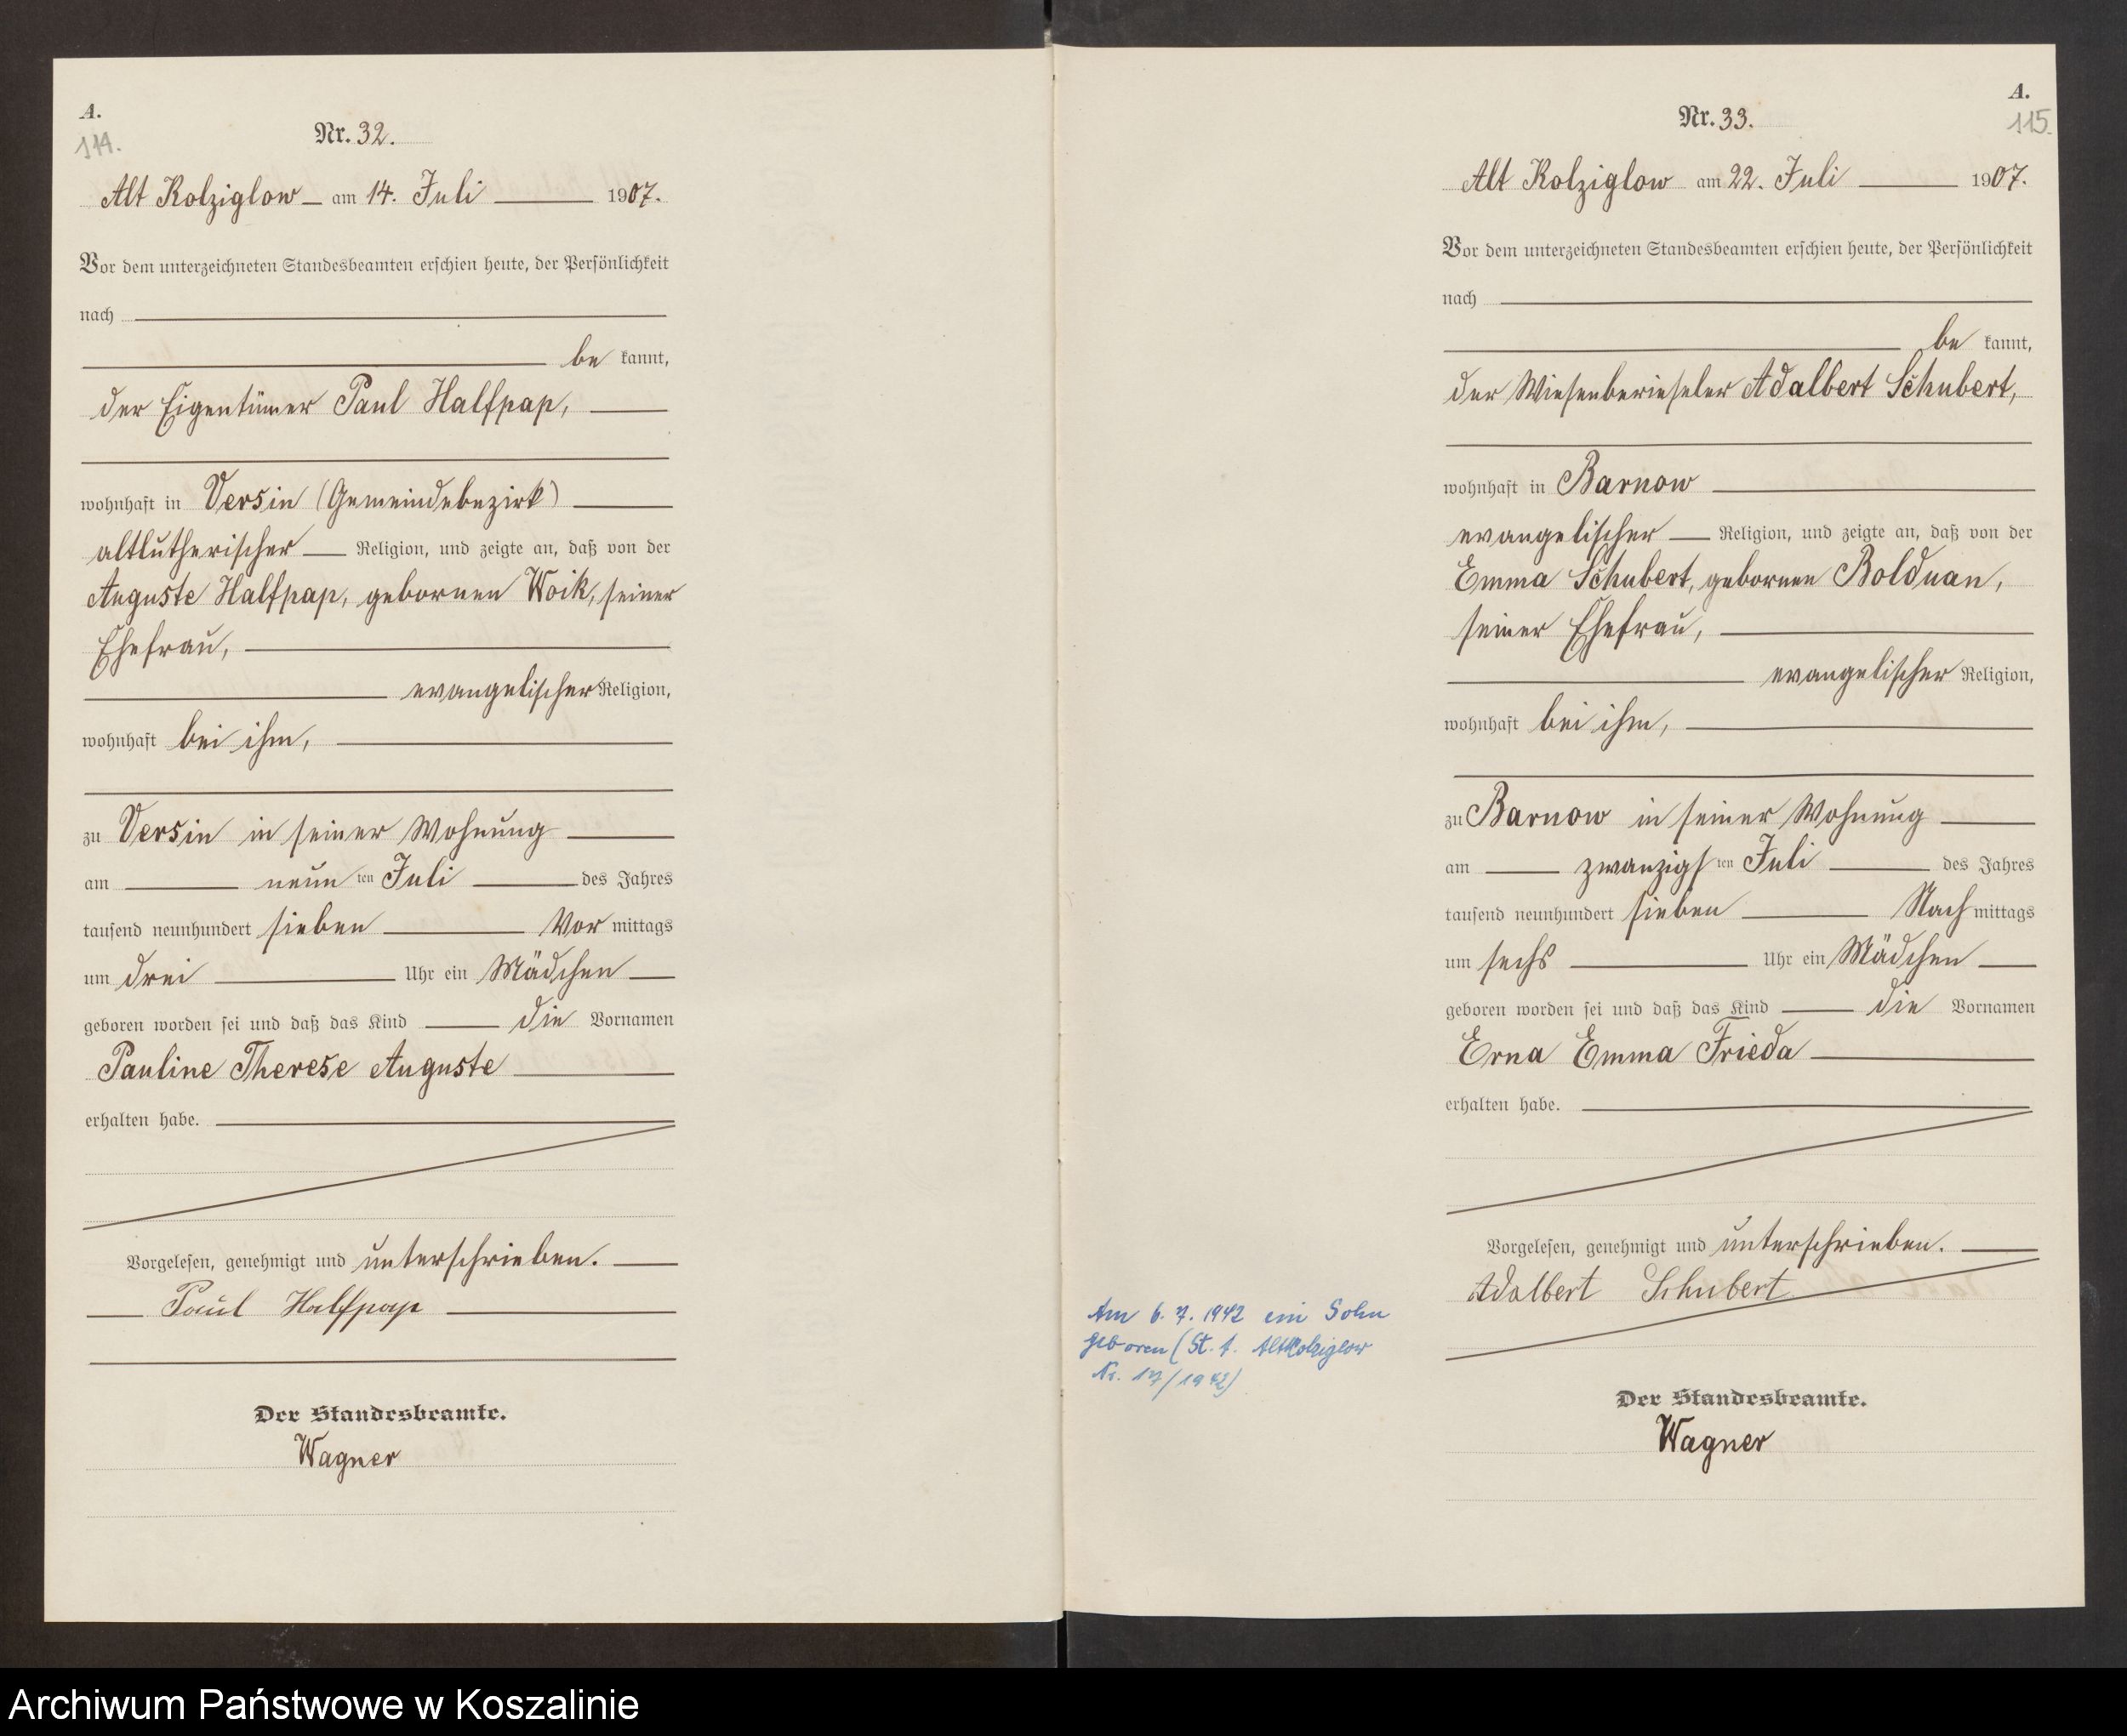 A.
114.
Nr. 32.
Alt Kolziglow am 14. Juli 1907.
Vor dem unterzeichneten Standesbeamten erschien heute, der Persönlichkeit
nach
be kannt,
der Eigentümer Paul Halfpap,
wohnhaft in Versin (Gemeindebezirk)
altlutherischer Religion, und zeigte an, daß von der
Auguste Halfpap, gebornen Woik, seiner
Ehefrau,
evangelischer Religion,
wohnhaft bei ihm,
zu Versin in seiner Wohnung
am neun ten Juli des Jahres
tausend neunhundert sieben Vor mittags
um drei Uhr ein Mädchen
geboren worden sei und daß das Kind die Vornamen
Pauline Therese Auguste
erhalten habe.
Vorgelesen, genehmigt und unterschrieben.
Paul Halfpap
Der Standesbeamte.
Wagner
A.
115.
Nr. 33.
Alt Kolziglow am 22. Juli 1907.
Vor dem unterzeichneten Standesbeamten erschien heute, der Persönlichkeit
nach
be kannt,
der Wiesenberieseler Adalbert Schubert,
wohnhaft in Barnow
evangelischer Religion, und zeigte an, daß von der
Emma Schubert, gebornen Bolduan,
seiner Ehefrau,
evangelischer Religion,
wohnhaft bei ihm,
zu Barnow in seiner Wohnung
am zwanzigs ten Juli des Jahres
tausend neunhundert sieben Nach mittags
um sechs Uhr ein Mädchen
geboren worden sei und daß das Kind die Vornamen
Erna Emma Frieda
erhalten habe.
Vorgelesen, genehmigt und unterschrieben.
Adalbert Schubert
Am 6. 7. 1942 ein Sohn
geboren (St. A. Altkolziglow
Nr. 17/1942)
Der Standesbeamte.
Wagner
Archiwum Państwowe w Koszalinie